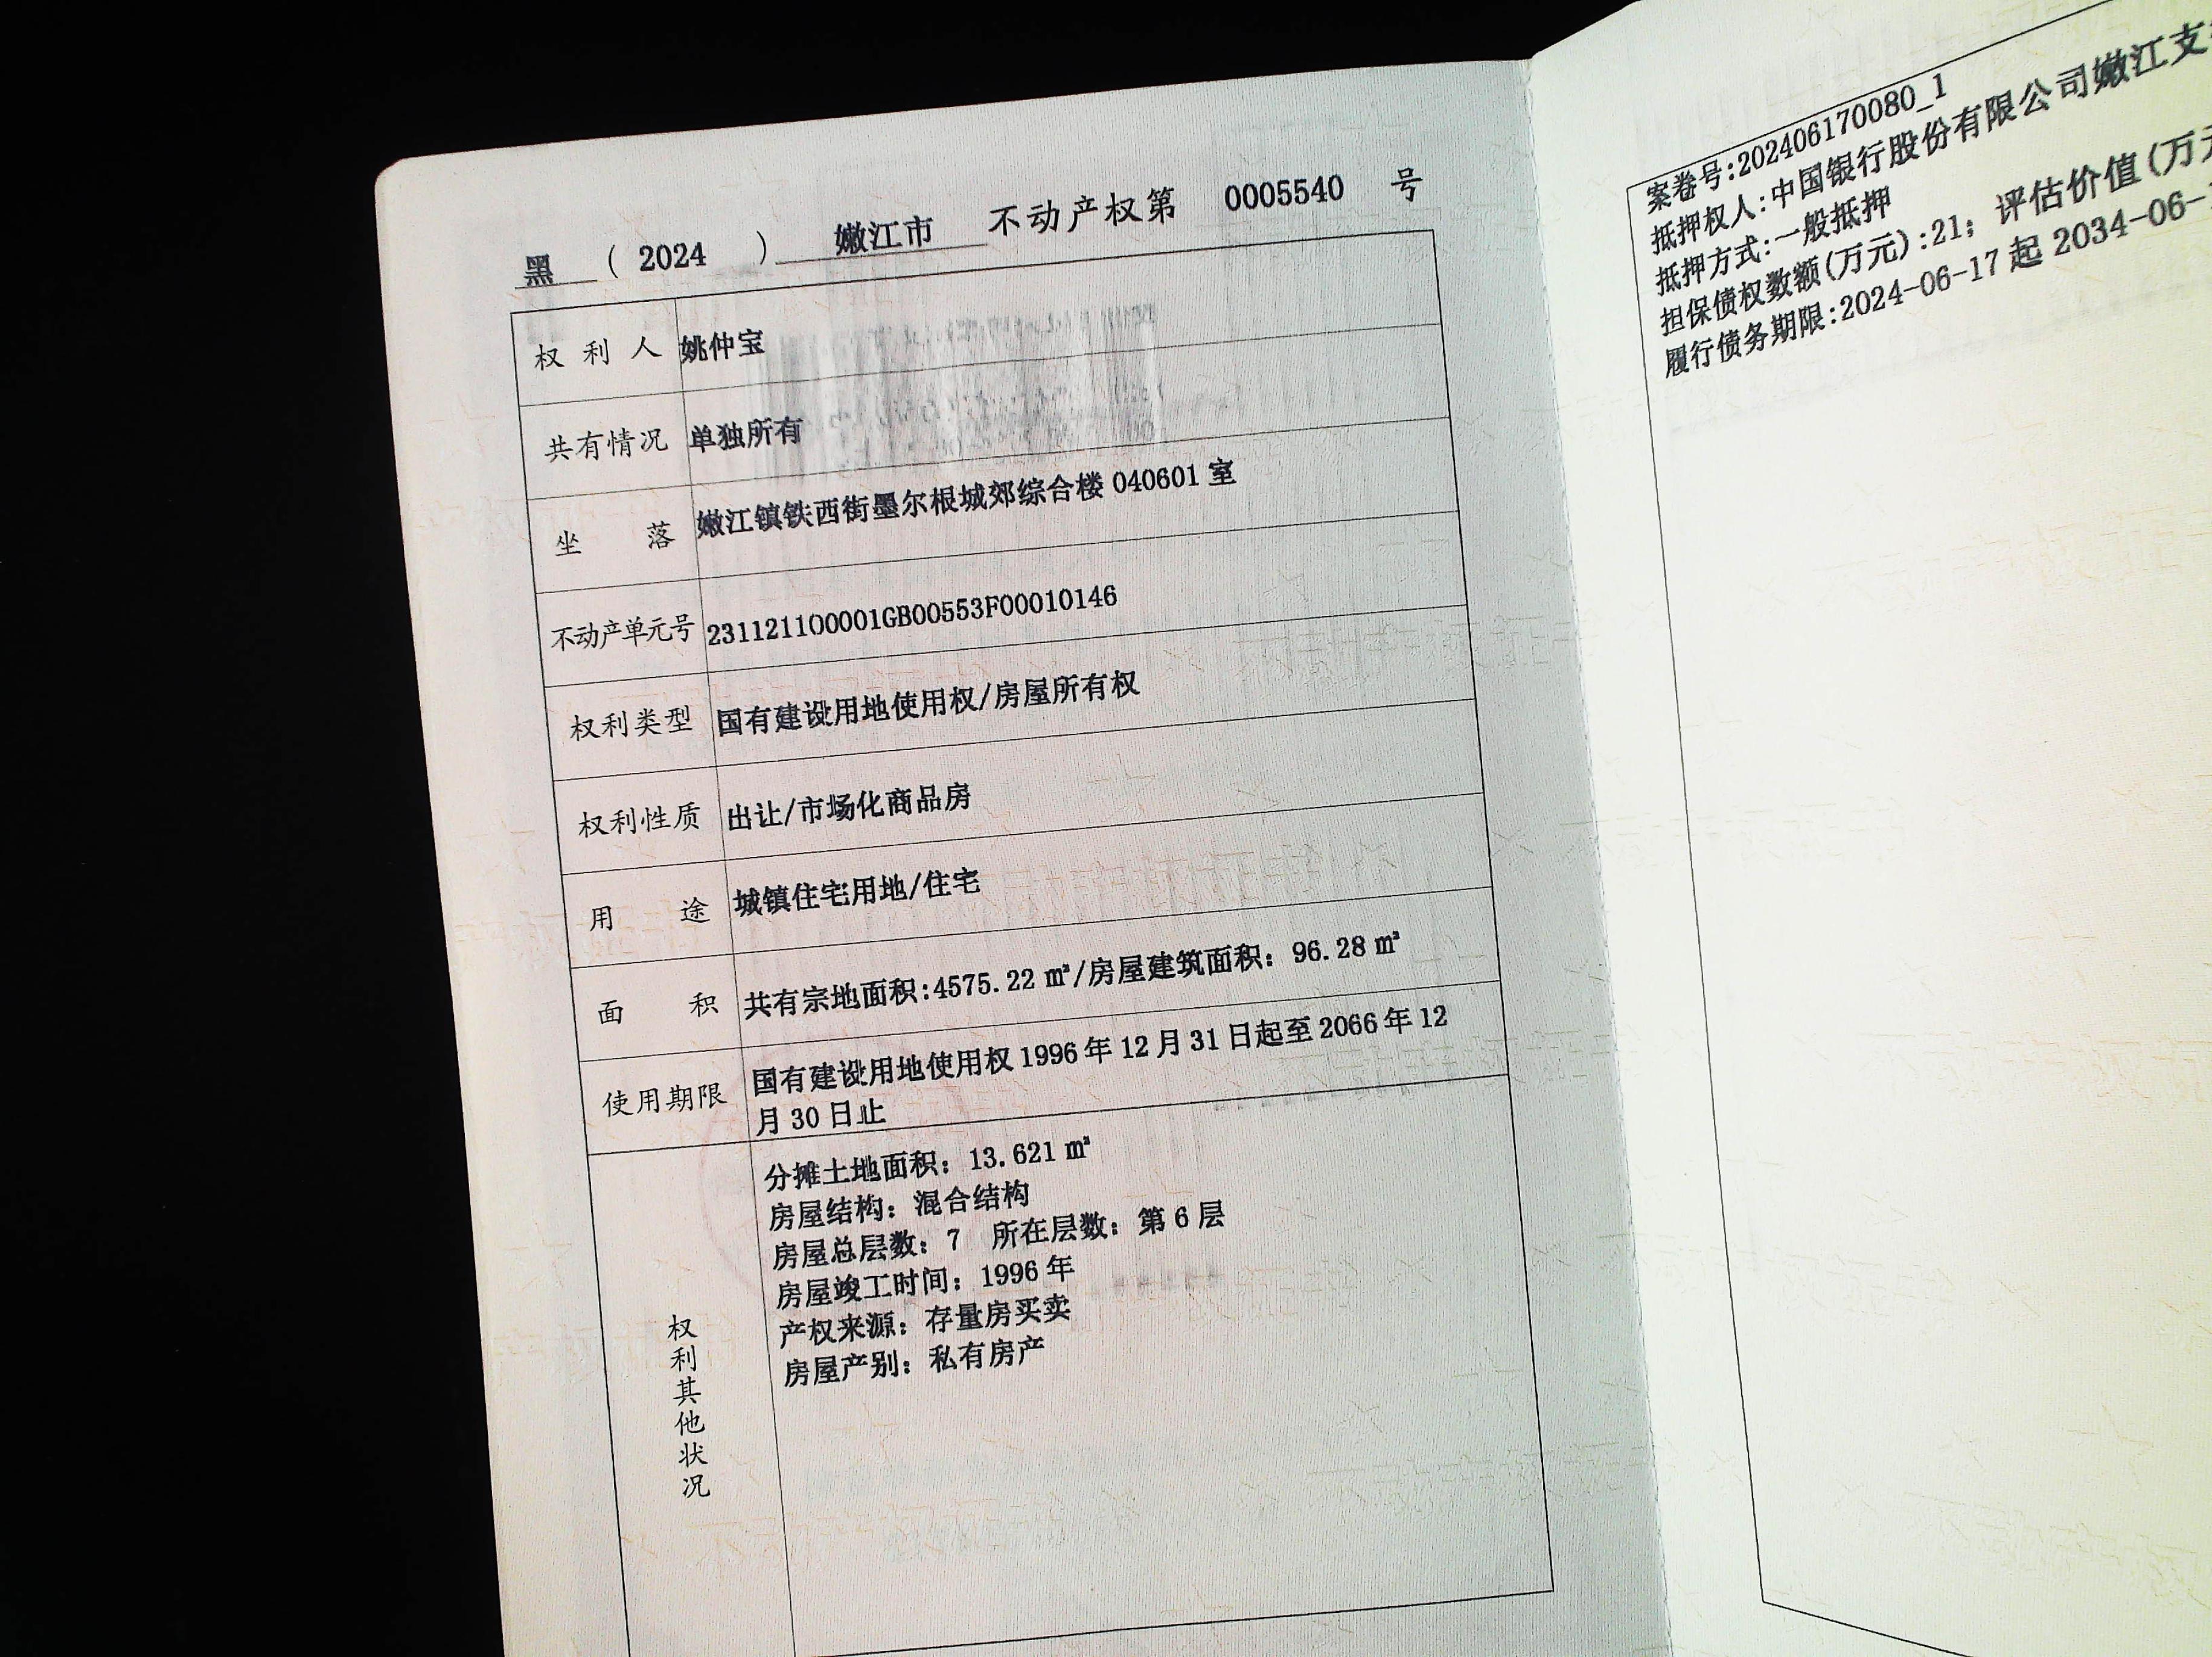 黑 ( 2024 ) 嫩江市 不动产权第 0005540 号
权利人 姚仲宝
共有情况 单独所有
坐落 嫩江镇铁西街墨尔根城郊综合楼 040601 室
不动产单元号 231121100001GB00553F00010146
权利类型 国有建设用地使用权/房屋所有权
权利性质 出让/市场化商品房
用途 城镇住宅用地/住宅
面积 共有宗地面积:4575.22 ㎡/房屋建筑面积：96.28 ㎡
使用期限 国有建设用地使用权 1996 年 12 月 31 日起至 2066 年 12
月 30 日止
权利其他状况
分摊土地面积：13.621 ㎡
房屋结构：混合结构
房屋总层数：7 所在层数：第 6 层
房屋竣工时间：1996 年
产权来源：存量房买卖
房屋产别：私有房产
案卷号:202406170080_1
抵押权人:中国银行股份有限公司嫩江支
抵押方式:一般抵押
担保债权数额(万元):21；评估价值(万
履行债务期限:2024-06-17 起 2034-06-